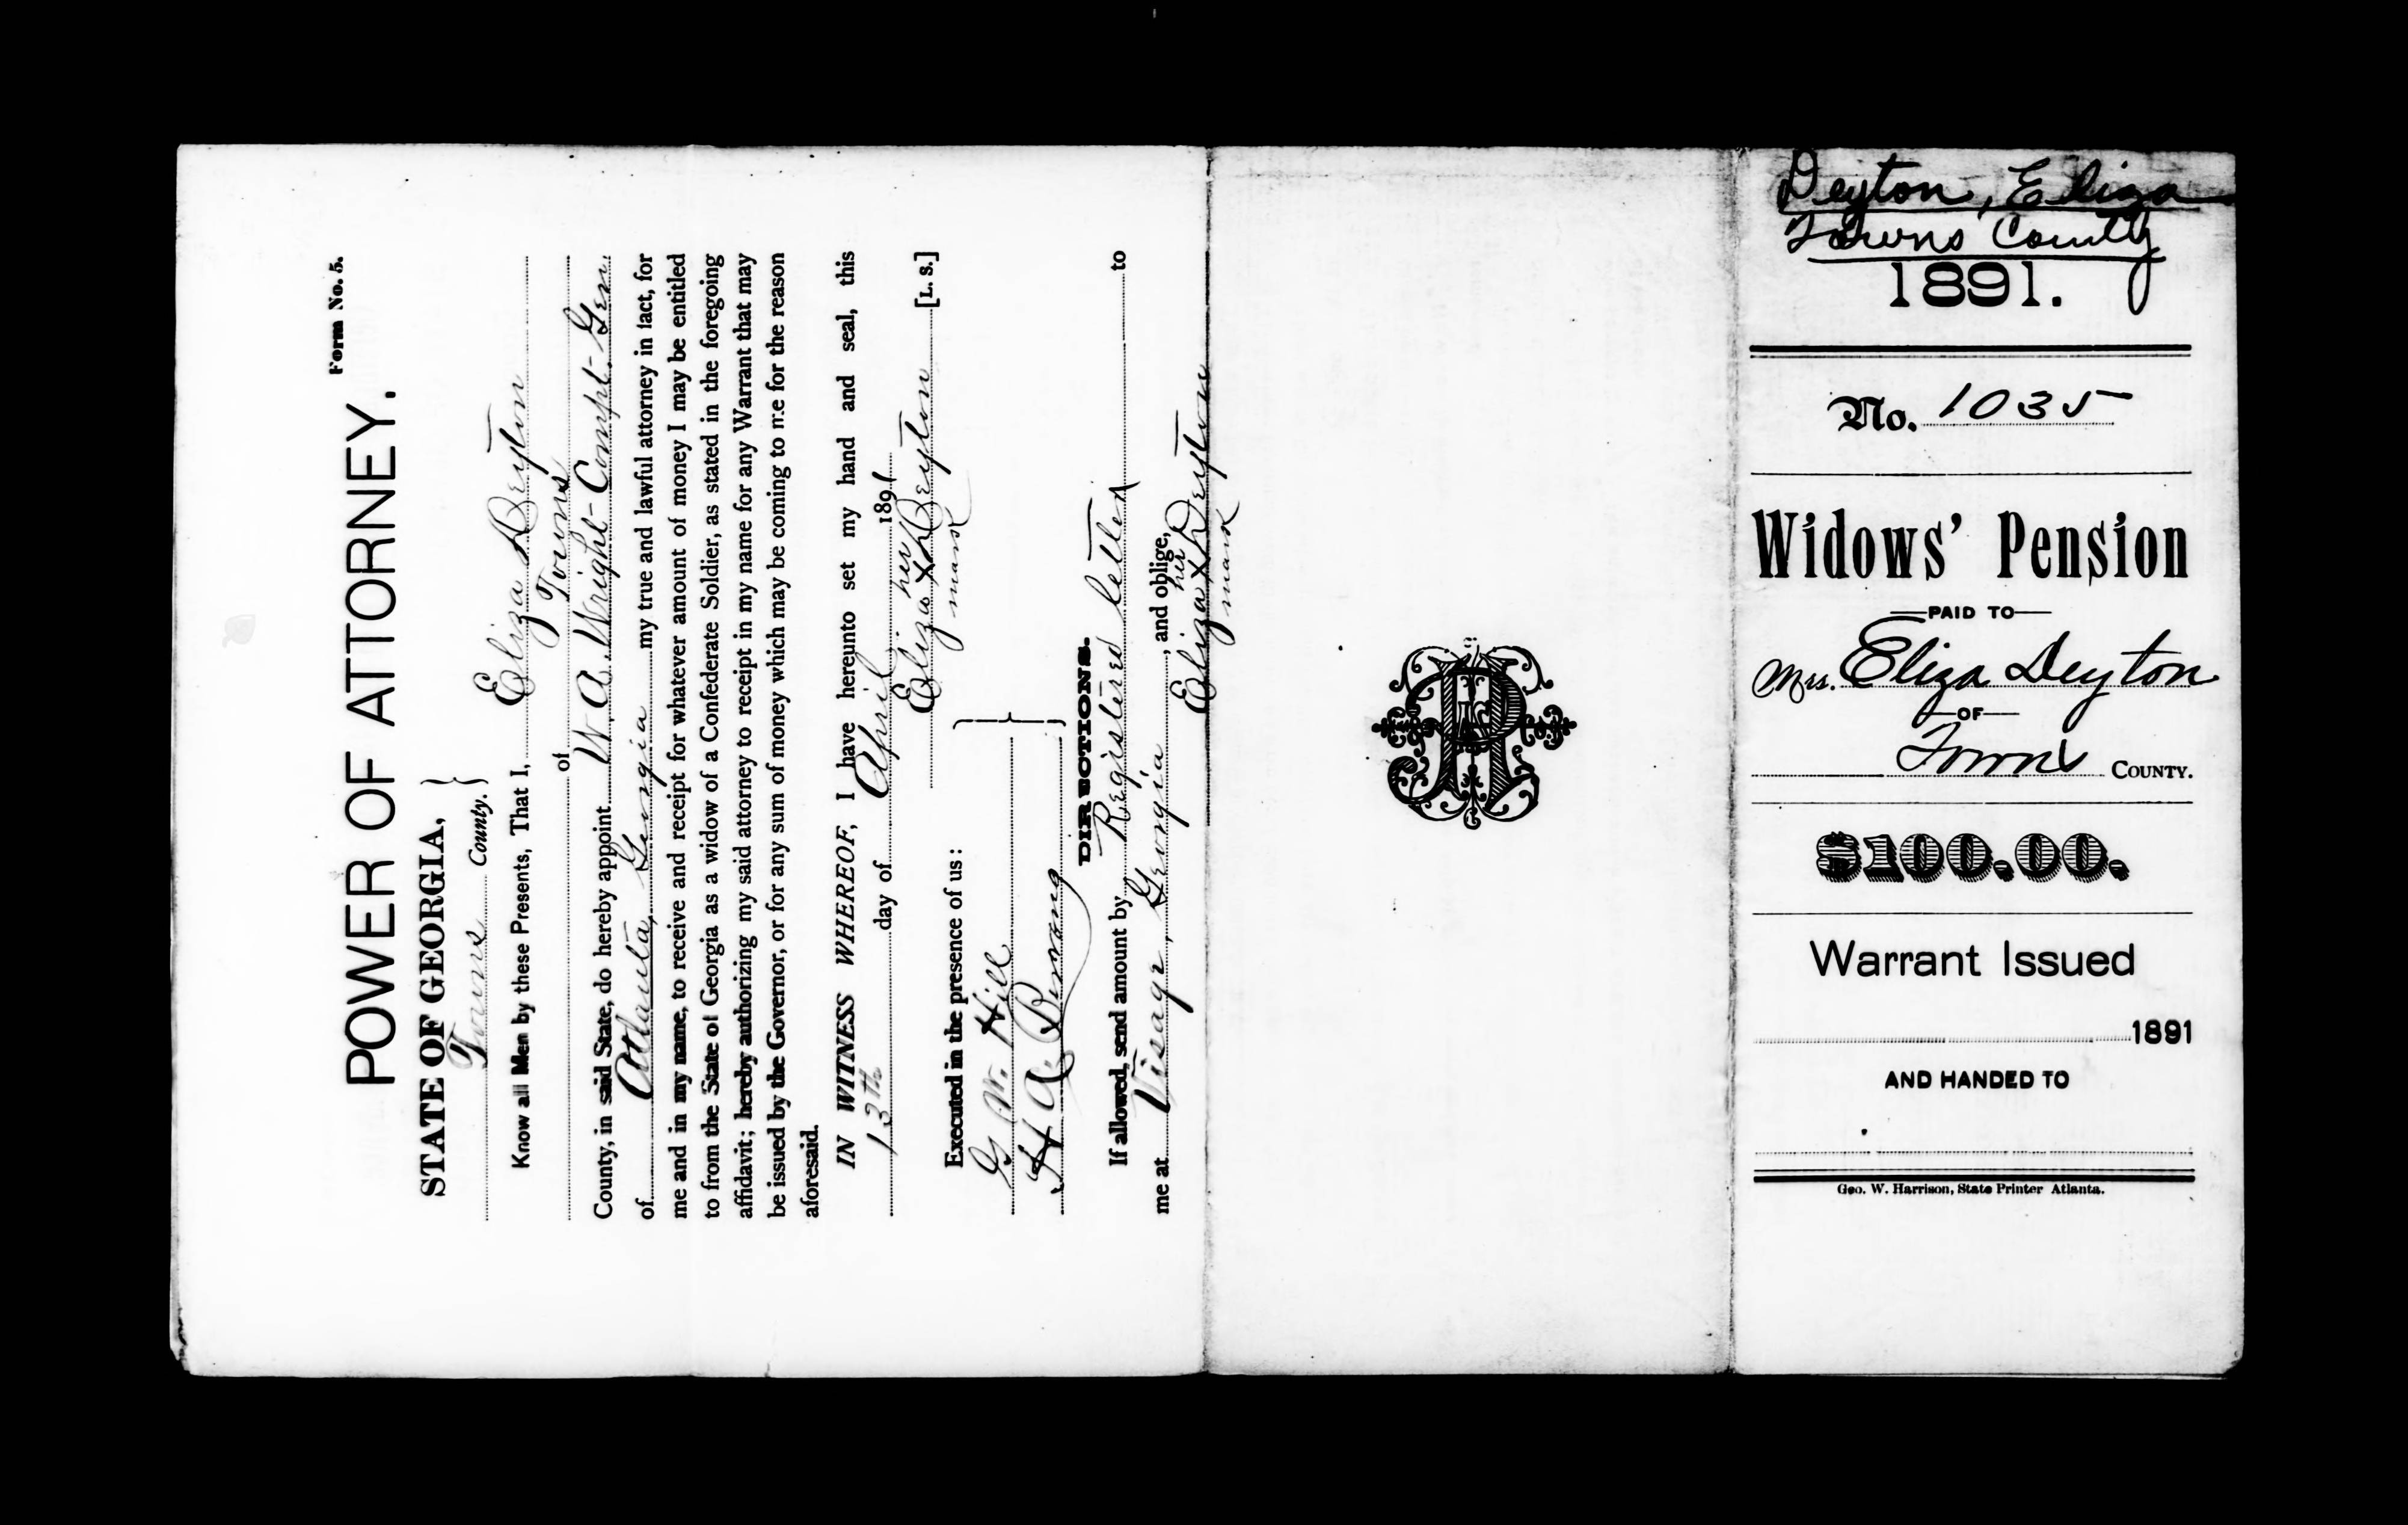 Form No. 5.
POWER OF ATTORNEY.
STATE OF GEORGIA,
Towns County.
Know all Men by these Presents, That I, Eliza Deyton
of Towns
County, in said State, do hereby appoint W. A. Wright-Compt. Gen.
of Atlanta, Georgia my true and lawful attorney in fact, for
me and in my name, to receive and receipt for whatever amount of money I may be entitled
to from the State of Georgia as a widow of a Confederate Soldier, as stated in the foregoing
affidavit; hereby authorizing my said attorney to receipt in my name for any Warrant that may
be issued by the Governor, or for any sum of money which may be coming to me for the reason
aforesaid.
IN WITNESS WHEREOF, I have hereunto set my hand and seal, this
13th day of April 1891
her
Eliza X Deyton [L. S.]
mark
Executed in the presence of us:
G W. Hill
H A
DIRECTIONS.
If allowed, send amount by Registered letter to
me at Visage, Georgia, and oblige,
her
Eliza X Deyton
mark
Deyton, Eliza
Towns County
1891.
No. 1035
Widows' Pension
PAID TO
Mrs. Eliza Deyton
OF
Towns COUNTY.
$100.00.
Warrant Issued
1891
AND HANDED TO
Geo. W. Harrison, State Printer Atlanta.